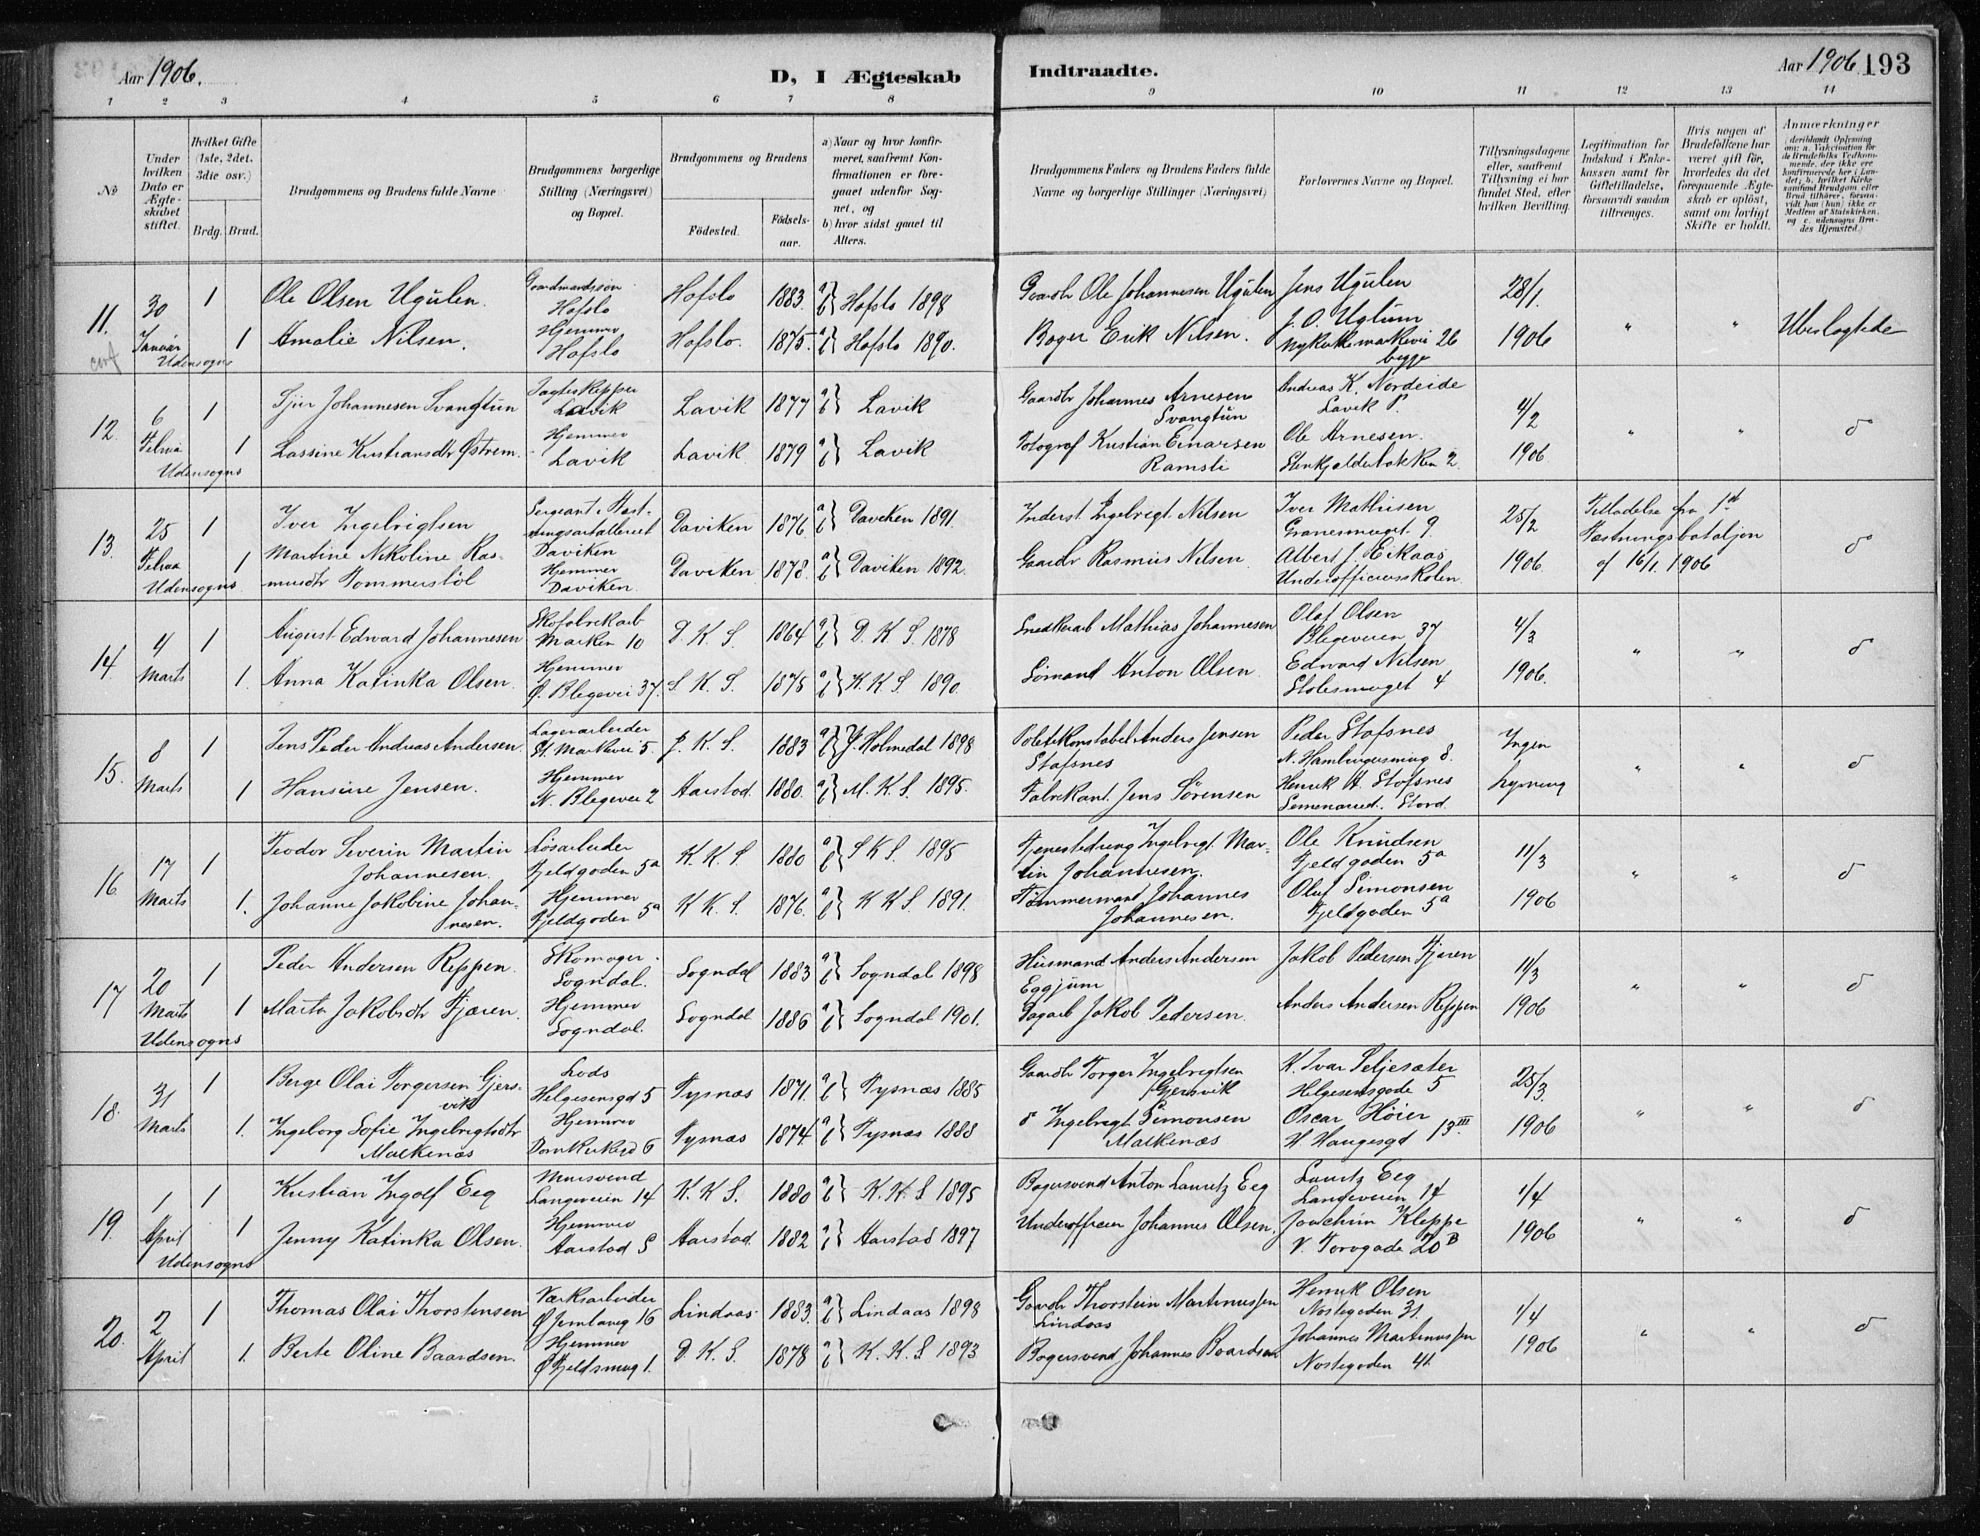 Aar 1906.
D, I Ægteskab
Indtraadte.
Aar 1906 193
1 2 3 4 5 6 7 8 9 10 11 12 13 14
No
Under hvilken Dato er Ægteskabet stiftet.
Hvilket Gifte (1ste, 2det, 3die osv.)
Brdg. Brud.
Brudgommens og Brudens fulde Navne
Brudgommens borgerlige Stilling (Næringsvei) og Bopæl.
Brudgommens og Brudens
Fødested.
Fødselsaar.
a) Naar og hvor konfirmeret, saafremt Konfirmationen er foregaaet udenfor Sognet, og
b) hvor sidst gaaet til Alters.
Brudgommens Faders og Brudens Faders fulde Navne og borgerlige Stillinger (Næringsvei)
Forlovernes Navne og Bopæl.
Tillysningsdagene eller, saafremt Tillysning ei har fundet Sted, efter hvilken Bevilling.
Legitimation for Indskud i Enkekassen samt for Giftetilladelse, forsaavidt saadan tiltrænges.
Hvis nogen af Brudefolkene har været gift før, hvorledes da det foregaaende Ægteskab er opløst, samt om lovligt Skifte er holdt.
Anmærkninger (deriblandt Oplysning om: a. Vakcination for de Brudefolks Vedkommende, der ikke ere konfirmerede her i Landet; b. hvilket Kirkesamfund Brudgom eller Brud tilhører, forsaavidt han (hun) ikke er Medlem af Statskirken, og c. udensogns Brudes Hjemsted.)
11. 30 Januar Udensogns 1 Ole Olsen Ugulen. Gaardmandssøn Hafslo Hafslo 1883 a b } Hafslo 1898 Gaardbr Ole Johannesen Ugulen Jens Ugulen 28/1
1 Amalie Nilsen. Hjemme Hafslo Hafslo. 1875 a b } Hafslo 1890. Bager Erik Nilsen. J. O. Uglum Nykirkemarkevei 26 1906 " " Ubeslægtede
12. 6 Februa Udensogns 1 Johannesen Svangtun Jagteskipper Lavik Lavik 1877 a b } Lavik Gaardbr Johannes Arnesen Svangtun Andreas K. Nordeide Lavik P. 4/2
1 Lassine Kristiansdtr Østrem Hjemme Lavik Lavik 1879 a b } Lavik Fotograf Kristian Einarsen Ramsli Ole Arnesen. Stenkjelderbakken 2 1906 " " do
13. 25 Februa Udensogns 1 Iver Ingebrigtsen Sergeant Daviken Daviken 1876 a b } Daviken 1891. Inderst Ingebrigt Nilsen Iver Mathisen Granesmuget 9. 25/2 Tilladelse fra 1ste Fæstningsbataljon
1 Martine Nikoline Rasmusdtr Tommerstøl Hjemme Daviken. Daviken 1878. a b } Daviken 1892. Gaardbr Rasmus Nilsen Albert J. Eikaas Underofficersskolen. 1906. af 16/1 1906 do
14. 4 Marts 1 August Edward Johannesen Skofabrikarb Marken 10 D. K. S. 1864 a b } D. K. S. 1878 Snedkerarb Mathias Johannesen Olaf Olsen Blegeveien 37 4/3
1. Anna Katinka Olsen. Hjemme Ø. Blegevei 37 S. K. S. 1875 a b } K. K. S. 1890. Sømand Anton Olsen Edward Nilsen Stølesmuget 4 1906. " " do
15. 8 Marts 1 Jens Peder Andreas Andersen. Lagerarbeider St. Markevei 5 J. K. S. 1883 a b } Y. Holmedal 1898 Politikonstabel Anders Jensen Stafsnes Peder Stafsnes N. Hamburgersmug 8. Ingen
1 Hansine Jensen. Hjemme N. Blegevei 2 Aarstad 1880. a b } M. K. S. 1895. Fabrikant Jens Sørensen Henrik A. Stafsnes Seminaried. Stord lysning " " do
16. 17 Marts 1 Teodor Severin Martin Johannesen. Løsarbeider Fjeldgaden 5a K. K. S. 1880 a b } S K S. 1895 Tjenestedreng Ingebrigt Martin Johannesen. Ole Knudsen Fjeldgaden 5a 11/3
1. Johanne Jakobine Johannesen. Hjemme Fjeldgaden 5a K K. S. 1876. a b } K K S. 1891. Tømmermand Johannes Johannesen. Oluf Simonsen Fjeldgaden 5a 1906 " " do
17 20 Marts Udensogns 1 Peder Andersen Reppen. Skomager Sogndal. Sogndal 1883 a b } Sogndal 1898 Husmand Anders Andersen Eggjum Jakob Pedersen Fjæren 11/3
1 Marta Jakobsdtr Fjæren. Hjemme Sogndal. Sogndal 1886 a b } Sogndal 1901. Dagarb Jakob Pedersen. Anders Andersen Reppen 1906 " " do
18. 31 Marts 1 Berge Olai Torgersen Gjersvik Lods Helgesensgd 5 Tysnæs 1871. a b } Tysnæs 1885 Gaardbr Torger Ingebrigtsen Gjersvik K. Ivar Seljesæter Helgesensgade 5 25/3.
1. Ingeborg Sofie Ingebrigtsdtr Malkenæs Hjemme Domkirkegd 6 Tysnæs 1874. a b } Tysnæs 1888 do Ingebrigt Simonsen Malkenæs Oscar Høier H. Haugesgd 13III. 1906 " " do
19. 1 April Udensogns 1 Kristian Ingolf Eeg Mursvend Langeveien 14 K. K S. 1880 a b } K. K. S 1895 Bagersvend Anton Lauritz Eeg Lauritz Eeg Langeveien 14 1/4
1 Jenny Katinka Olsen. Hjemme Aarstad 5 Aarstad. 1882 a b } Aarstad 1897 Underofficer Johannes Olsen. Joachim Kleppe V. Torvgade 20B 1906 " " do
20. 2 April 1 Thomas Olai Thorstensen Værksarbeider Ø Jemtaveg 16 Lindaas 1883. a b } Lindaas 1898 Gaardbr Thorstein Martinussen Lindaas Henrik Olsen Nøstegaden 31. 1/4
1. Berte Oline Baardsen. Hjemme Ø Fjeldsmug 1. D. K. S. 1878 a b } K. K. S 1893 Bagersvend Johannes Baardsen Johannes Martinussen Nøstegaden 41 1906 " " do